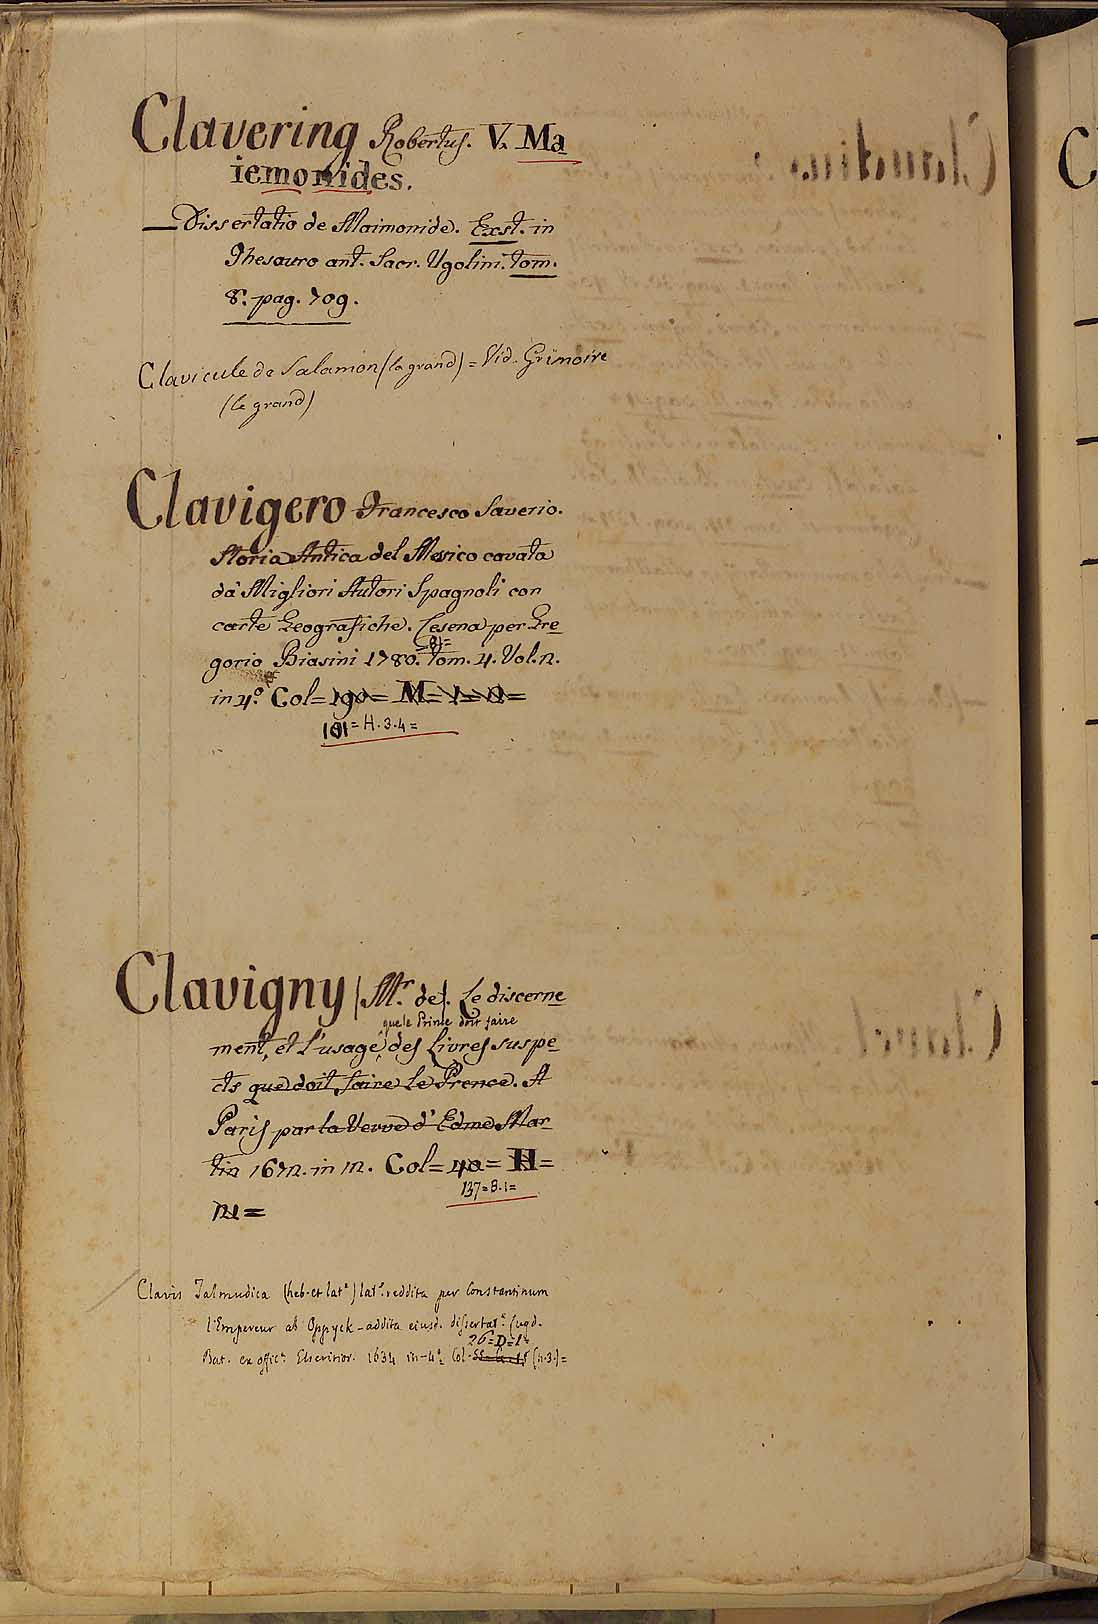 Clavering Robertus. V. Ma
iemonides.
— Dissertatio de Maimonide. Exst. in
Thesauro ant. Sacr. Ugolini. tom.
8. pag. 709.
Clavicule de Salamon (la grand) = Vid. Grimoire
(le grand)
Clavigero Francesco Saverio.
Storia Antica del Messico cavata
da' Migliori Autori Spagnoli con
carte Geografiche. Cesena per Gre
=81=
gorio Biasini 1780. Tom. 4. Vol. 2.
in 4.º Col = 190 = M = 1 = 2 =
101 = H. 3. 4 =
Clavigny (Mr. de). Le discerne
que le Prince doit faire
ment, et l'usage des Livres suspe
cts que doit faire le Prence. A
Paris par la Veuve d'Edme Mar
tin 1672. in 12. Col = 40 = H =
137 = 8. 1 =
21 =
Clavis Talmudica (heb. et lat.ª) lat.ª reddita per Constantinum
l'Empereur ab Oppyck - addita eiusd. dissertat.ᵉ Lugd.
26 = D = 1 =
Bat. ex offic.ª Elzevirior. 1634 in-4.º Col. (n. 3.) =
C